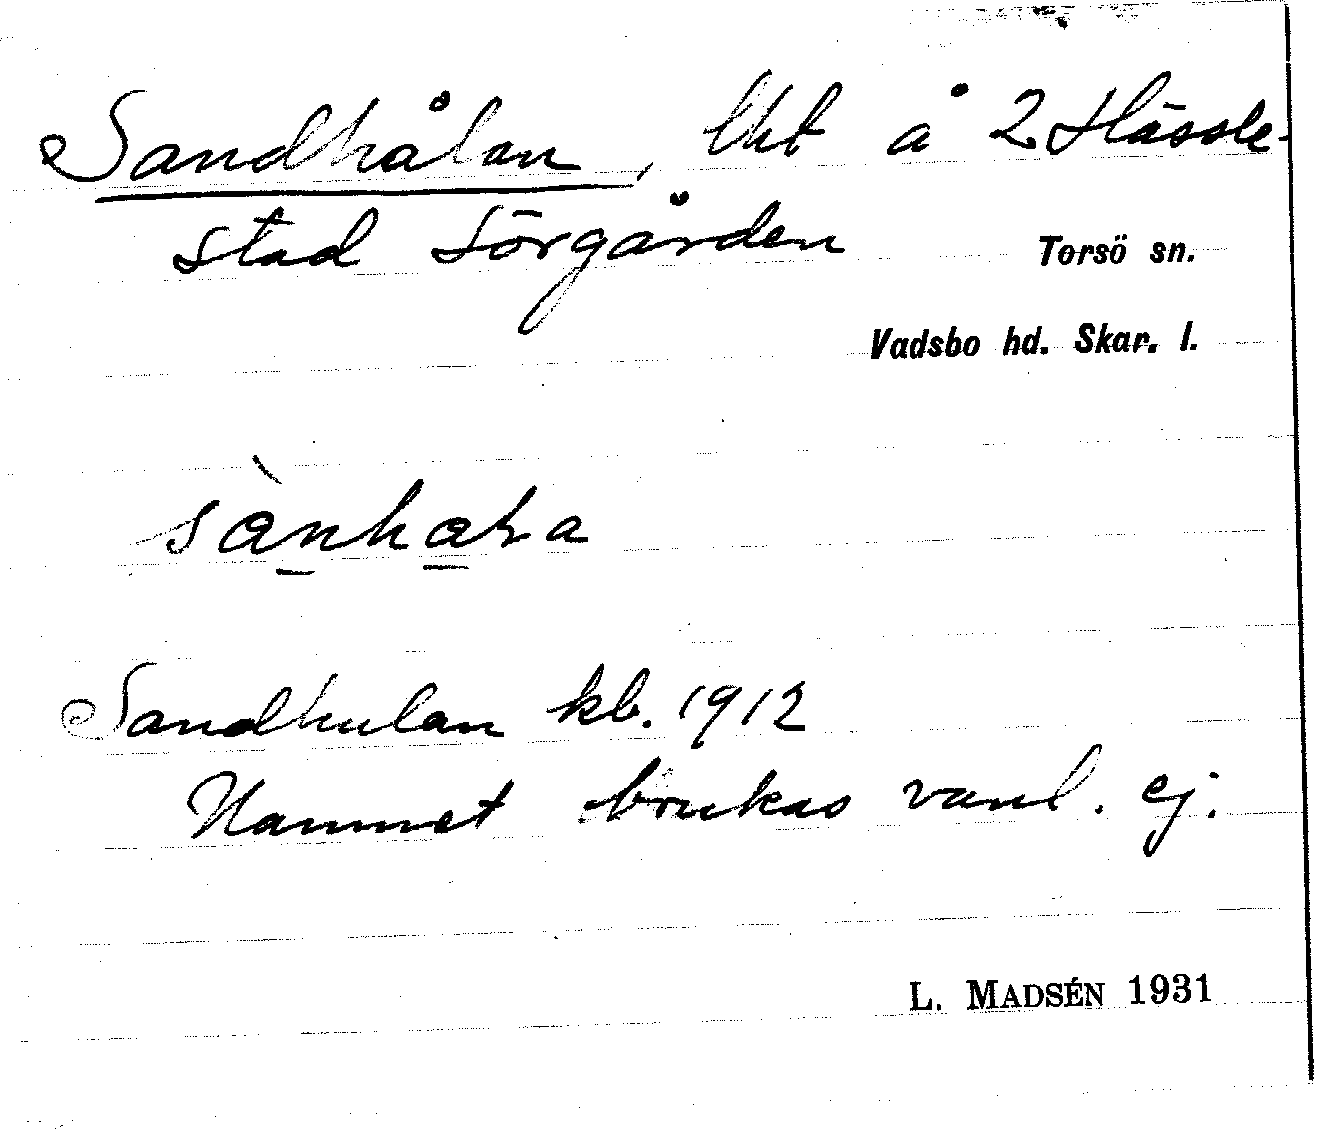 Sandhålan, lht å 2 Hässle-
stad Sörgården
Torsö sn.
Vadsbo hd. Skar. l.
Sandhulan kb. 1912
Namnet brukas vanl. ej.
L. MADSÉN 1931